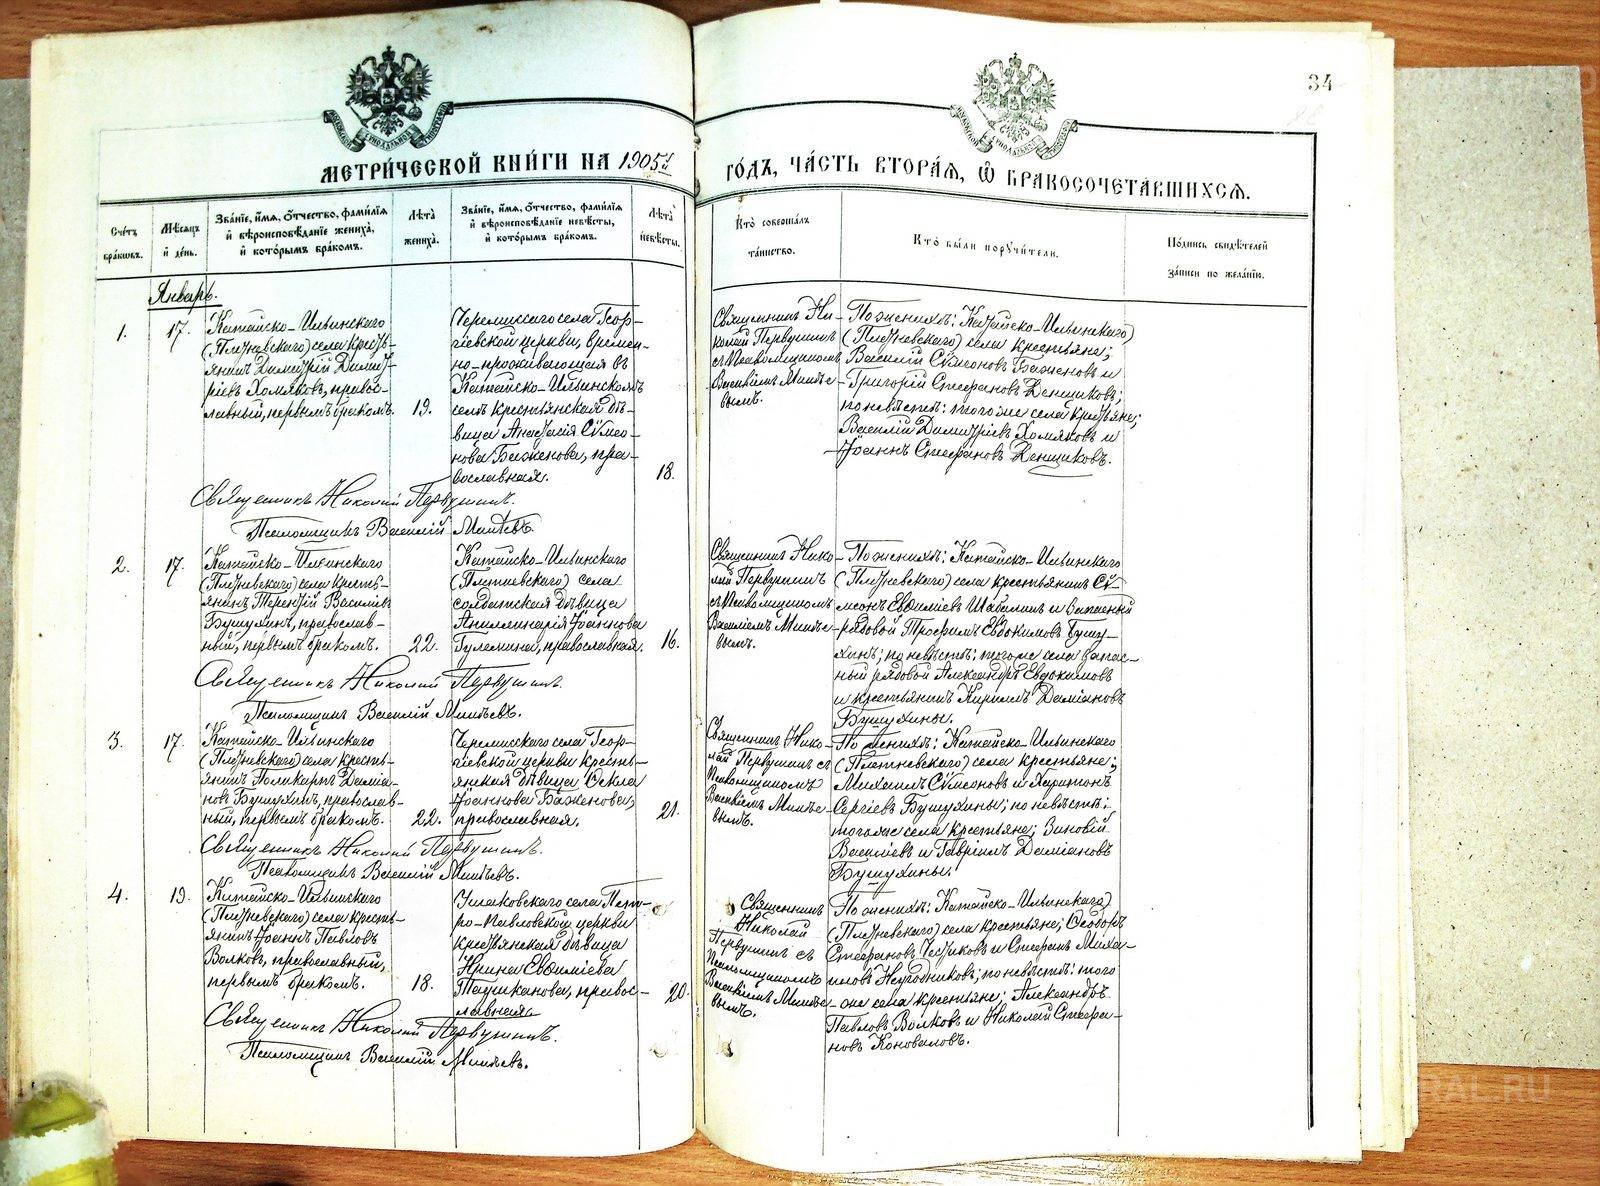 34
МЕТРИ́ЧЕСКОЙ КНИ́ГИ НА 1905й
ГО́ДЪ, ЧА́СТЬ ВТОРА́Я, Ѡ БРАКОСОЧЕТА́ВШИХСЯ.
Сче́тъ бра́ковъ.
Мѣ́сяцъ и́ де́нь.
Зва́нїе, и́мя, о́тчество, фами́лїя
и́ вѣроисповѣ́данїе жениха̀,
и́ кото́рымъ бра́комъ.
Лѣ́та жениха̀.
Зва́нїе, и́мя, о́тчество, фами́лїя
и́ вѣроисповѣ́данїе невѣ́сты,
и́ кото́рымъ бра́комъ.
Лѣ́та невѣ́сты.
Кто̀ соверша́лъ
та́инство.
Кто̀ бы́ли пору́чи́тели.
По́дпись свидѣ́телей
за́писи по жела́нїю.
Январь.
1.
17.
Катайско-Ильинскаго
(Плотневскаго) села кресть-
янинъ Димитрій Димит-
ріевъ Хомяковъ, правос-
лавный, первымъ бракомъ.
19.
Черемисскаго села Геор-
гіевской церкви, времен-
но-проживающая въ
Катайско-Ильинскомъ
селѣ крестьянская дѣ-
вица Анастасія Сѵмео-
нова Баженова, пра-
вославная.
18.
Священникъ Ни-
колай Первушинъ
съ Псаломщикомъ
Василіемъ Минѣе-
вымъ.
По женихѣ: Катайско-Ильинскаго
(Плотневскаго) села крестьяне;
Василій Сѵмеоновъ Баженовъ и
Григорій Стефановъ Денщиковъ;
по невѣстѣ: того же села крестьяне;
Василій Димитріевъ Хомяковъ и
Іоаннъ Стефановъ Денщиковъ.
Священникъ Николай Первушинъ.
Псаломщикъ Василій Минѣевъ.
2.
17.
Катайско-Ильинскаго
(Плотневскаго) села кресть-
янинъ Терентій Василіев
Бушухинъ, православ-
ный, первымъ бракомъ.
22.
Катайско-Ильинскаго
(Плотневскаго) села
солдатская дѣвица
Аполлинарія Іоаннова
Гулемина, православная.
16.
Священникъ Нико-
лай Первушинъ
съ Псаломщикомъ
Василіемъ Минѣе-
вымъ.
По женихѣ: Катайско-Ильинскаго
(Плотневскаго) села крестьянинъ Сѵ-
меонъ Евфиміевъ Шабалинъ и запасный
рядовой Трофимъ Евдокимовъ Бушу-
хинъ; по невѣстѣ: того же села запас-
ный рядовой Александръ Евдокимовъ
и крестьянинъ Кириллъ Даміановъ
Бушухины.
Священникъ Николай Первушинъ.
Псаломщикъ Василій Минѣевъ.
3.
17.
Катайско-Ильинскаго
(Плотневскаго) села кресть-
янинъ Поликарпъ Даміа-
новъ Бушухинъ, православ-
ный, первымъ бракомъ.
22.
Черемисскаго села Геор-
гіевской церкви кресть-
янская дѣвица Ѳекла
Іоаннова Баженова,
православная.
21.
Священникъ Нико-
лай Первушинъ съ
Псаломщикомъ
Василіемъ Минѣе-
вымъ.
По женихѣ: Катайско-Ильинскаго
(Плотневскаго) села крестьяне;
Михаилъ Сѵмеоновъ и Харитонъ
Сергіевъ Бушухины; по невѣстѣ:
того же села крестьяне; Зиновій
Василіевъ и Гавріилъ Даміановъ
Бушухины.
Священникъ Николай Первушинъ.
Псаломщикъ Василій Минѣевъ.
4.
19.
Катайско-Ильинскаго
(Плотневскаго) села кресть-
янинъ Іоаннъ Павловъ
Волковъ, православный,
первымъ бракомъ.
18.
села Пет-
ро-Павловской церкви
крестьянская дѣвица
Ирина Евфиміева
православная
20.
Священникъ
Николай
Первушинъ съ
Псаломщикомъ
Василіемъ Минѣе-
вымъ.
По женихѣ: Катайско-Ильинскаго
(Плотневскаго) села крестьяне; Ѳеодоръ
Стефановъ и Стефанъ Миха-
иловъ Негодниковъ; по невѣстѣ: того
же села крестьяне; Александръ
Павловъ Волковъ и Николай Стефа-
новъ Коноваловъ.
Священникъ Николай Первушинъ.
Псаломщикъ Василій Минѣевъ.
RAL.RU